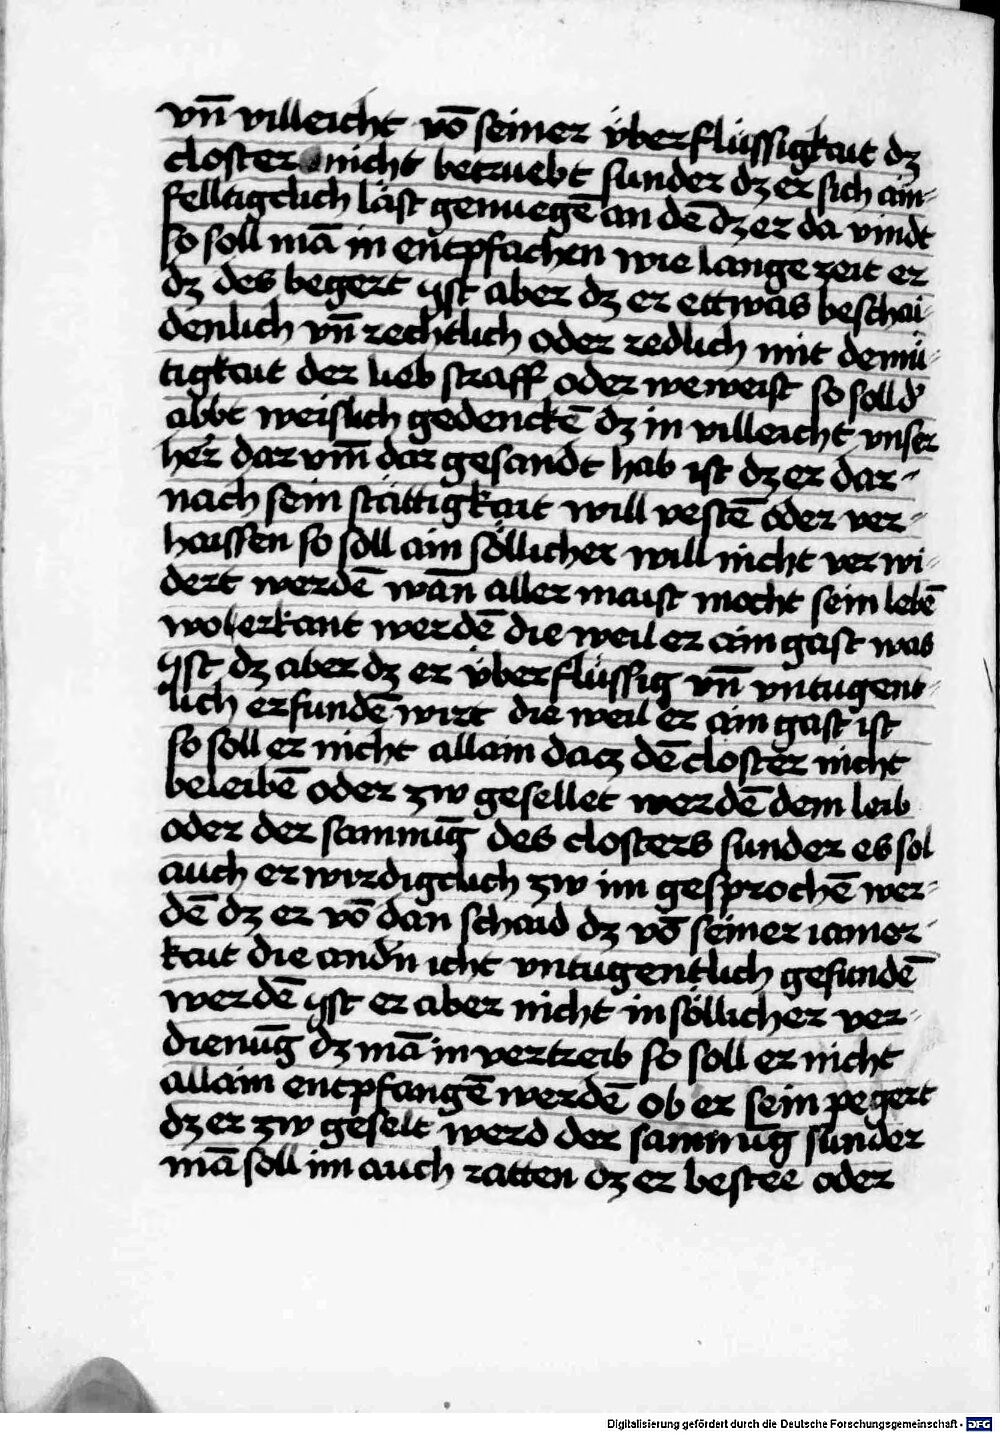 vn̄ villeicht vō seiner v̈berflüssigkait dʒ
closter nicht betruebt sunder dʒ er sich ain-
felltigclich läst genuegē an dē dʒ er da vindt
so soll mā in entpfachen wie lange zeit er
dʒ des begert yst aber dʒ er ettwas beschai-
denlich vn̄ rechtlich oder redlich mit demü-
tigkait der lieb straff oder weweist so soll d'
abbt weislich gedenckē dʒ in villeicht vnser
her dar vm̄ dar gesandt hab ist dʒ er dar-
nach sein stättigkait will vestē oder ver-
haissen so soll ain söllicher will nicht ver wi-
dert werdē wān aller maist mocht sein lebē
wol erkant werdē die weil er ain gast was
yst dʒ aber dʒ er v̈berflüssig vn̄ vntugent-
lich erfundē wirt die weil er ain gast ist
so soll er nicht allain dacʒ dē closter nicht
beleibē oder zw gesellet werdē dem leib
oder der sammūg des closters sunder es sol
auch erwirdigclich zw im gesprochē wer-
dē dʒ er vō dan schaid dʒ vō seiner iamer-
kait die and'n icht vntugentlich gefundē
werdē yst er aber nicht in söllicher ver-
dienūg dʒ mā in vertreib so soll er nicht
allain entpfangē werdē ob er sein pegert
dʒ er zw geselt werd der sammūg sunder
mā soll im auch ratten dʒ er bestee oder
Digitalisierung gefördert durch die Deutsche Forschungsgemeinschaft - DFG